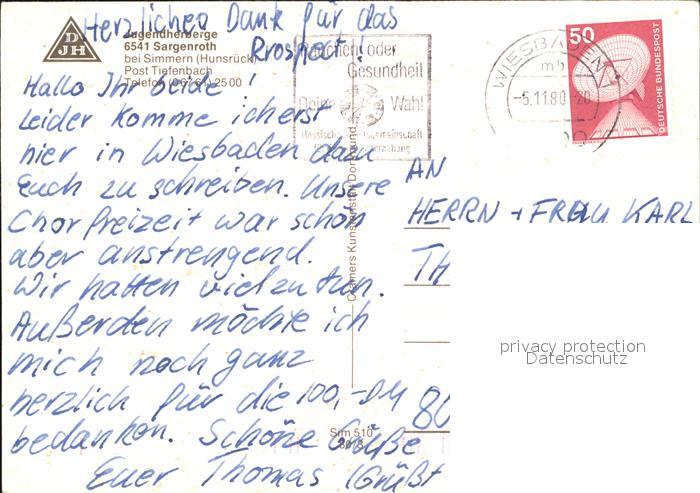 Herzlichen Dank für das
Prospekt!
DJH
Jugendherberge
6541 Sargenroth
bei Simmern (Hunsrück)
Post Tiefenbach
Telefon (06761) 2500
Hallo Ihr beide!
Leider komme ich erst
hier in Wiesbaden dazu
Euch zu schreiben. Unsere
Chorfreizeit war schön
aber anstrengend.
Wir hatten viel zu tun.
Außerden möchte ich
mich noch ganz
herzlich für die 100,-DM
bedanken. Schöne Grüße
Euer Thomas (Grüßt
oder
Gesundheit
Deine Wahl
WIESBADEN
mb
-5.11.80-20
50
DEUTSCHE BUNDESPOST
Cramers Kunstanstalt Dortmund
Sim 510
AN
HERRN + FRAU KARL
TH
80
privacy protection
Datenschutz